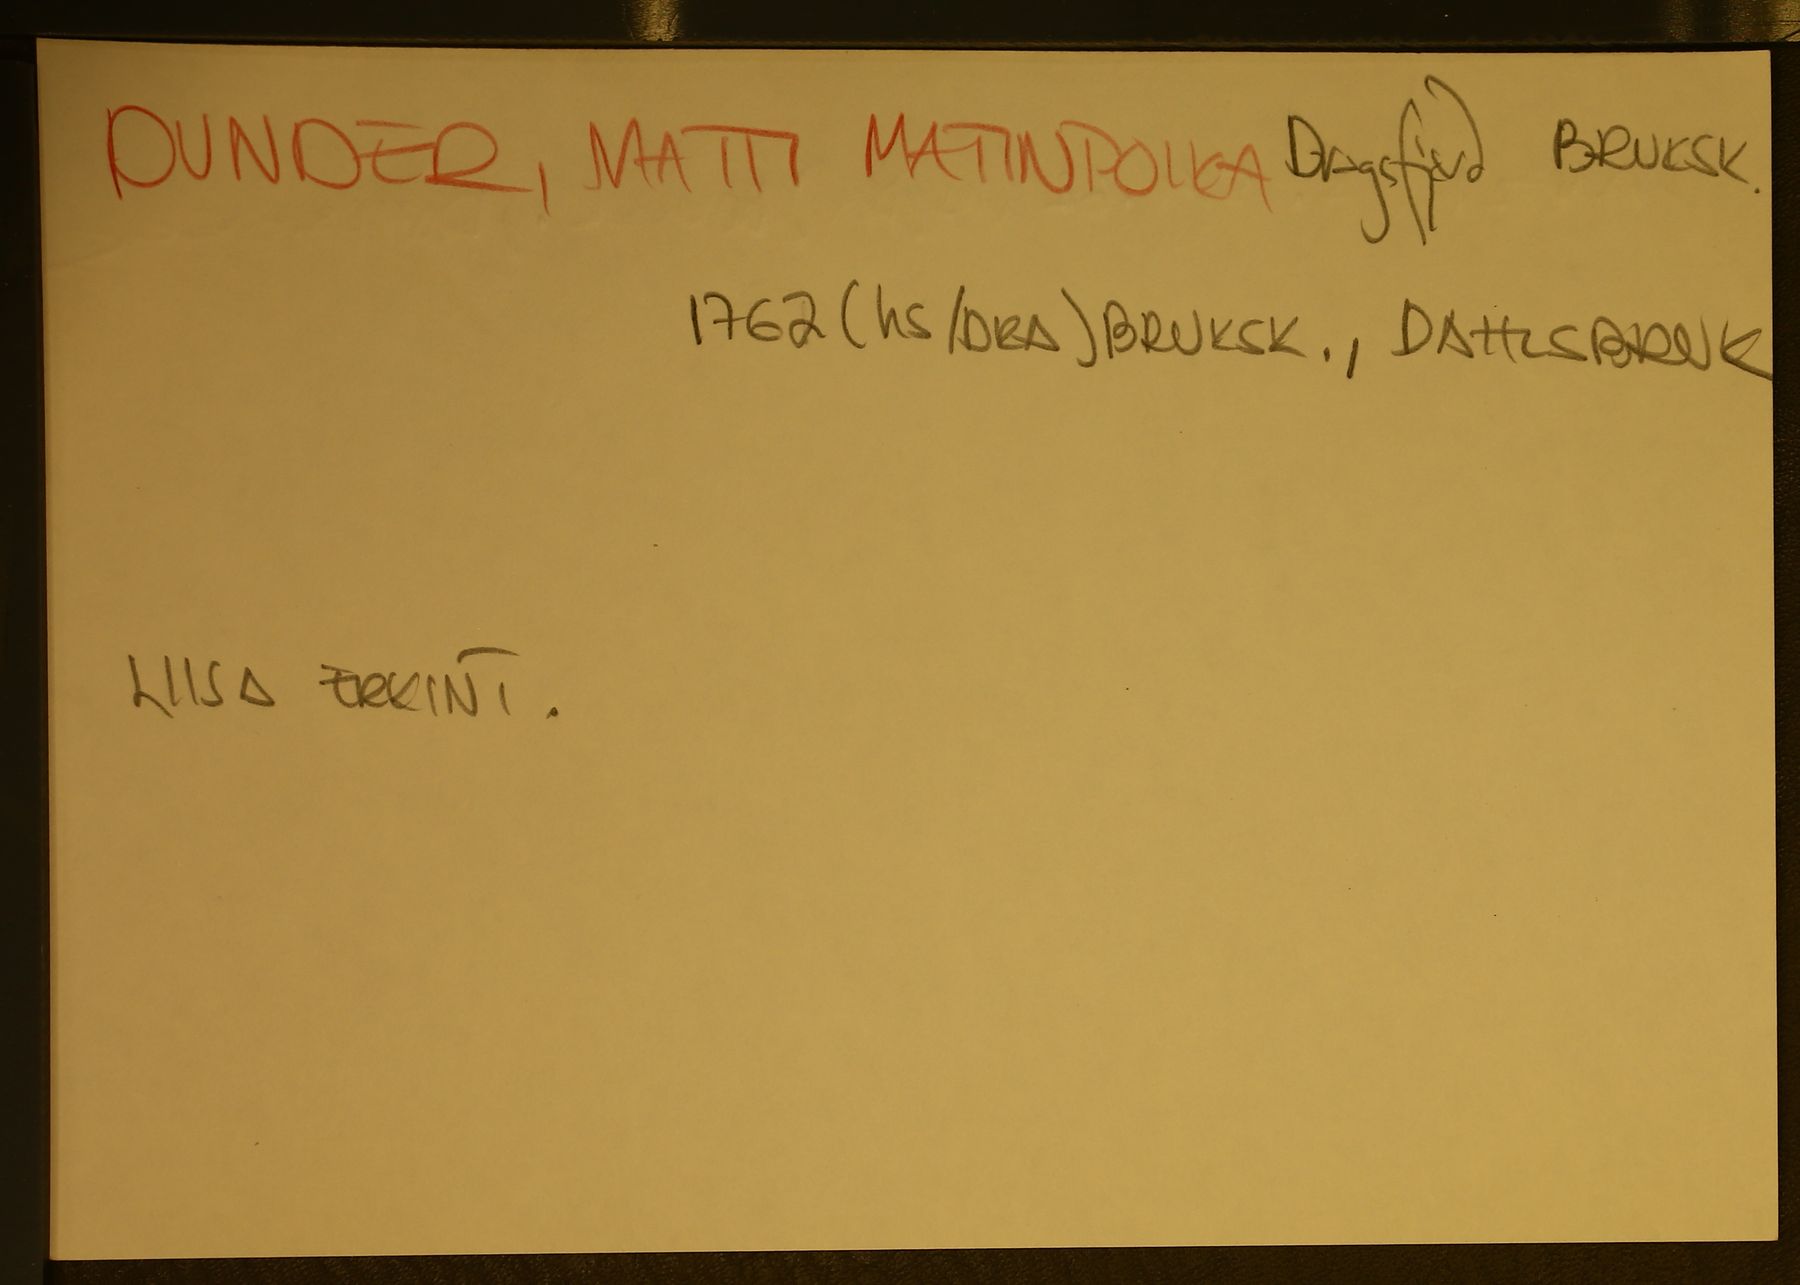 DUNDER, MATTI MATINPOIKA Dragsfjärd BRUKSK.
1762 (hs/DKA) BRUKSK., DAHLSBRUK
LIISA ERKINT.